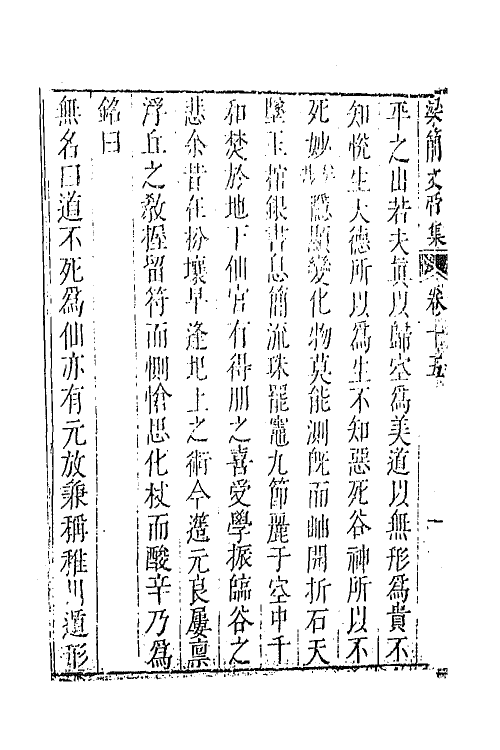 梁簡文帝集 卷十五 一
平之出若夫眞以歸空爲美道以無形爲貴不
知悅生大德所以爲生不知惡死谷神所以不
死妙矣哉隱顯變化物莫能測旣而岫開折石天
墜玉棺銀書息簡流珠罷竈九節麗于空中千
和焚於地下仙官有得朋之喜受學振臨谷之
悲余昔在枌壤早逢圯上之術今遵元良屢稟
浮丘之敎握留符而惻愴思化杖而酸辛乃爲
銘曰
無名曰道不死爲仙亦有元放兼稱稚川遁形